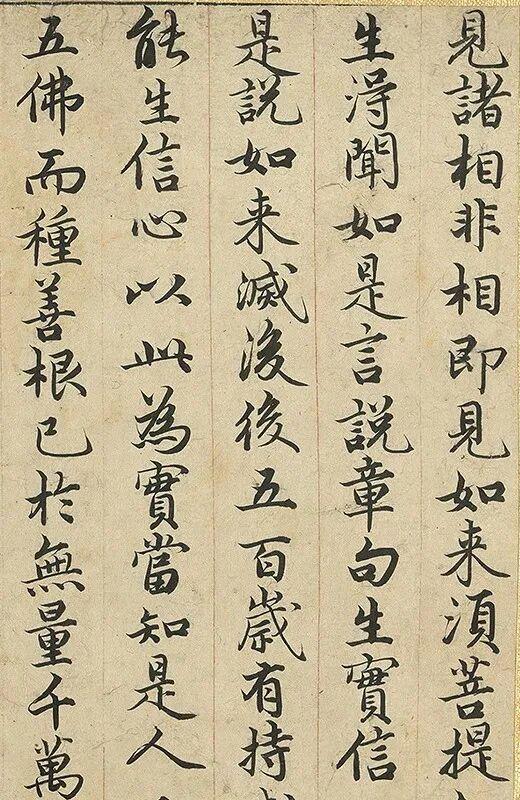 見諸相非相即見如来湏菩提
生淂聞如是言說章句生實信
是說如来滅後後五百歲有持
能生信心以此為實當知是人
五佛而種善根已於無量千萬